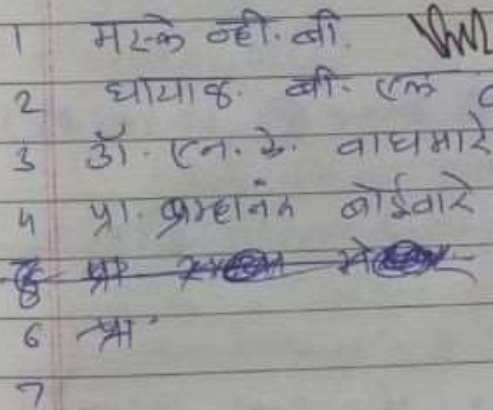 1 मस्के व्ही. बी.
2 घायाळ. बी. एल
3 डॉ. एन. के. वाघमारे
4 प्रा. ब्रम्हानंद बोईवारे
प्रा
6 प्रा.
7